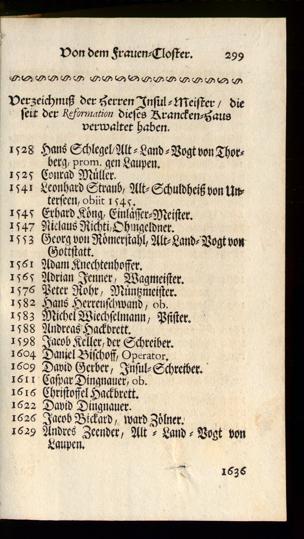 Von dem Frauen-Closter. 299
Verzeichnuß der Herren Insul-Meister / die
seit der Reformation dieses Krancken-Haus
verwaltet haben.
1528 Hans Schlegel / Alt-Land-Vogt von Thor-
berg, prom. gen Laupen.
1525 Conrad Müller.
1541 Leonhard Straub, Alt-Schuldheiß von Un-
terseen, obiit 1545.
1545 Erhard Köng, Einlässer-Meister.
1547 Niclaus Richti, Ohmgeldner.
1553 Georg von Römerstahl, Alt-Land-Vogt von
Gottstatt.
1561 Adam Knechtenhoffer.
1565 Adrian Jenner, Wagmeister.
1576 Peter Rohr, Müntzmeister.
1582 Hans Herrenschwand, ob.
1583 Michel Wiechselmann, Pfister.
1588 Andreas Hackbrett.
1598 Jacob Keller, der Schreiber.
1604 Daniel Bischoff, Operator.
1609 David Gerber, Insul-Schreiber.
1611 Caspar Dingnauer, ob.
1616 Christoffel Hackbrett.
1622 David Dingnauer.
1626 Jacob Bickard, ward Zölner.
1629 Andres Zeender, Alt-Land-Vogt von
Laupen.
1636